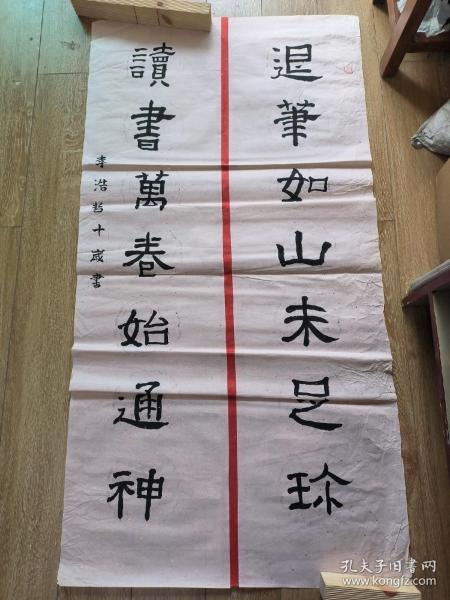 退筆如山未足珎
讀書萬卷始通神
李浩哲十歲書
孔夫子旧书网
www.kongfz.com